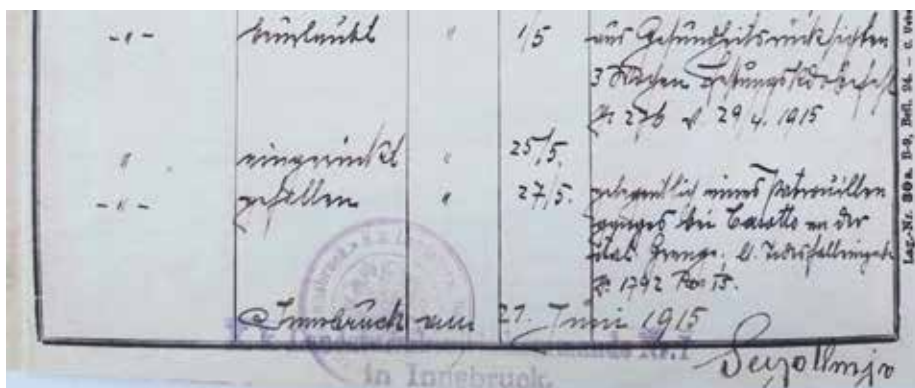 -"- beurlaubt " 1/5 aus Gesundheitsrücksichten
3 Wochen Festungskdo-Befehl
Nr 276 v 29/4. 1915
" eingerückt " 25/5.
-"- gefallen " 27/5. gelegentlich eines Patrouillen
ganges bei Casotto an der
ital. Grenze. lt. Todesfalleingabe
Nr. 1792 Res. 15.
Innsbruck am 21. Juni 1915
Nr. I
in Innsbruck.
Lag.-Nr. 20a. B-9, Beil. 24. –